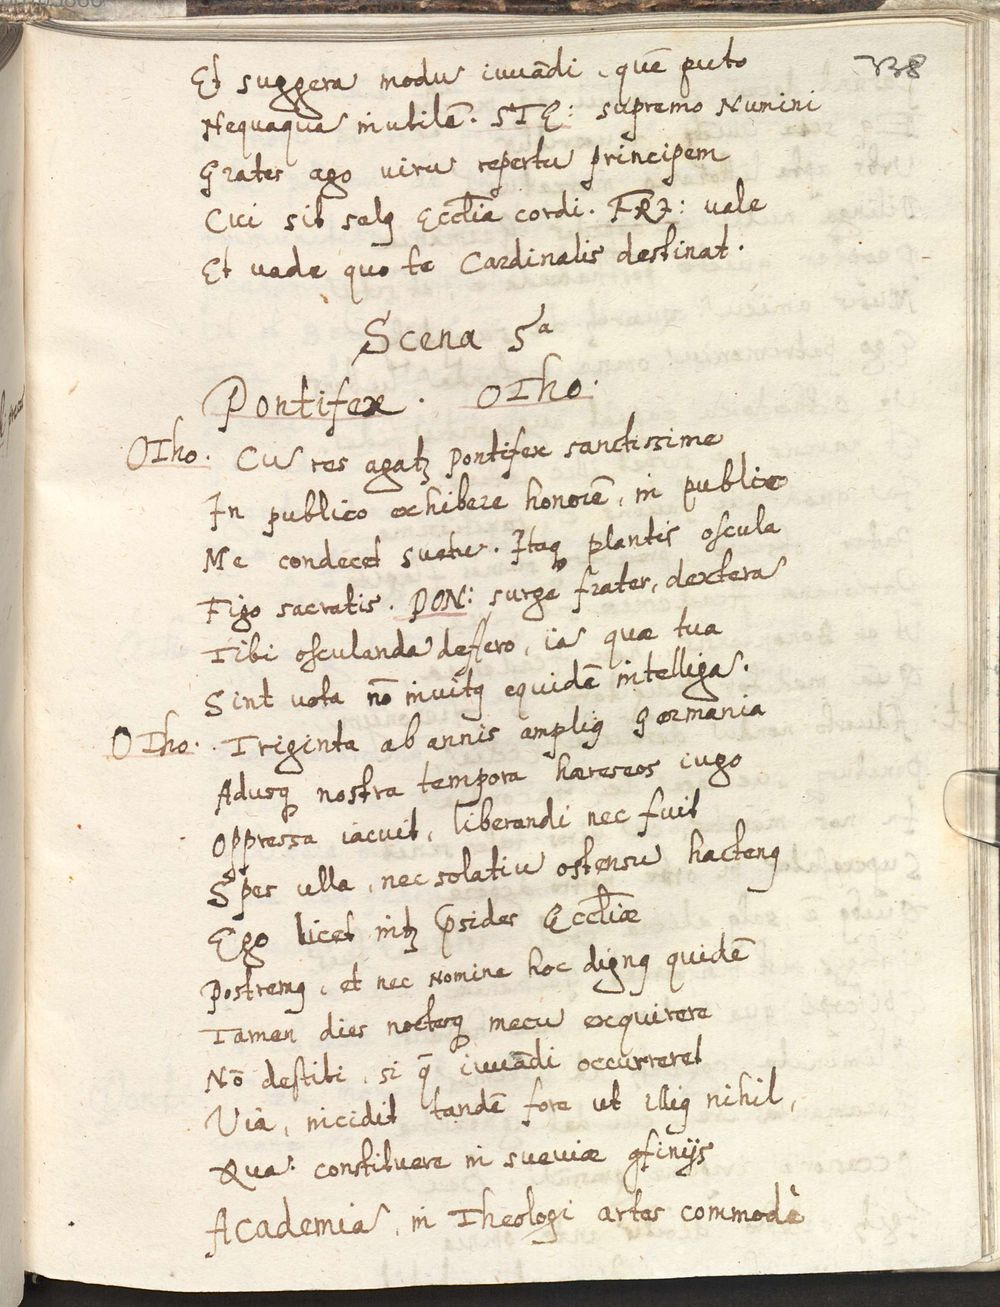 338
Et suggera modũ iuuãdi, quẽ puto
Nequaquã inutilẽ. STE: supremo Numini
Grates ago virũ repertũ principem
Cui sit salꝰ Eccl̃ia cordi. FRI: uale
Et uade quo te Cardinalis destinat.
Scena 5a
Pontifex. Otho.
Otho. Cũ res agatꝫ Pontifex sanctissime
In publico exhibere honorẽ, in publico
Me condecet suetũ. Itaqꝫ plantis oscula
Figo sacratis. PON: surge frater, dexterã
Tibi osculandã deffero, iã quæ tua
Sint uota nõ inuitꝰ equidẽ intelligã.
Otho. Triginta ab annis ampliꝰ Germania
Adusqꝫ nostra tempora hæreseos iugo
Oppressa iacuit, liberandi nec fuit
Spes ulla, nec solatiũ ostensũ hactenꝰ
Ego licet intꝫ p̃sides Eccl̃iæ
Postremꝰ, et nec Nomine hoc dignꝰ quidẽ
Tamen dies noctesqꝫ mecũ exquirere
Nõ destiti, si q̃ iuuãdi occurreret
Via, incidit tandẽ fore ut illiꝰ nihil,
Quã constituere in sueuiæ ꝯfinijs
Academiã, in Theologi artes commodè